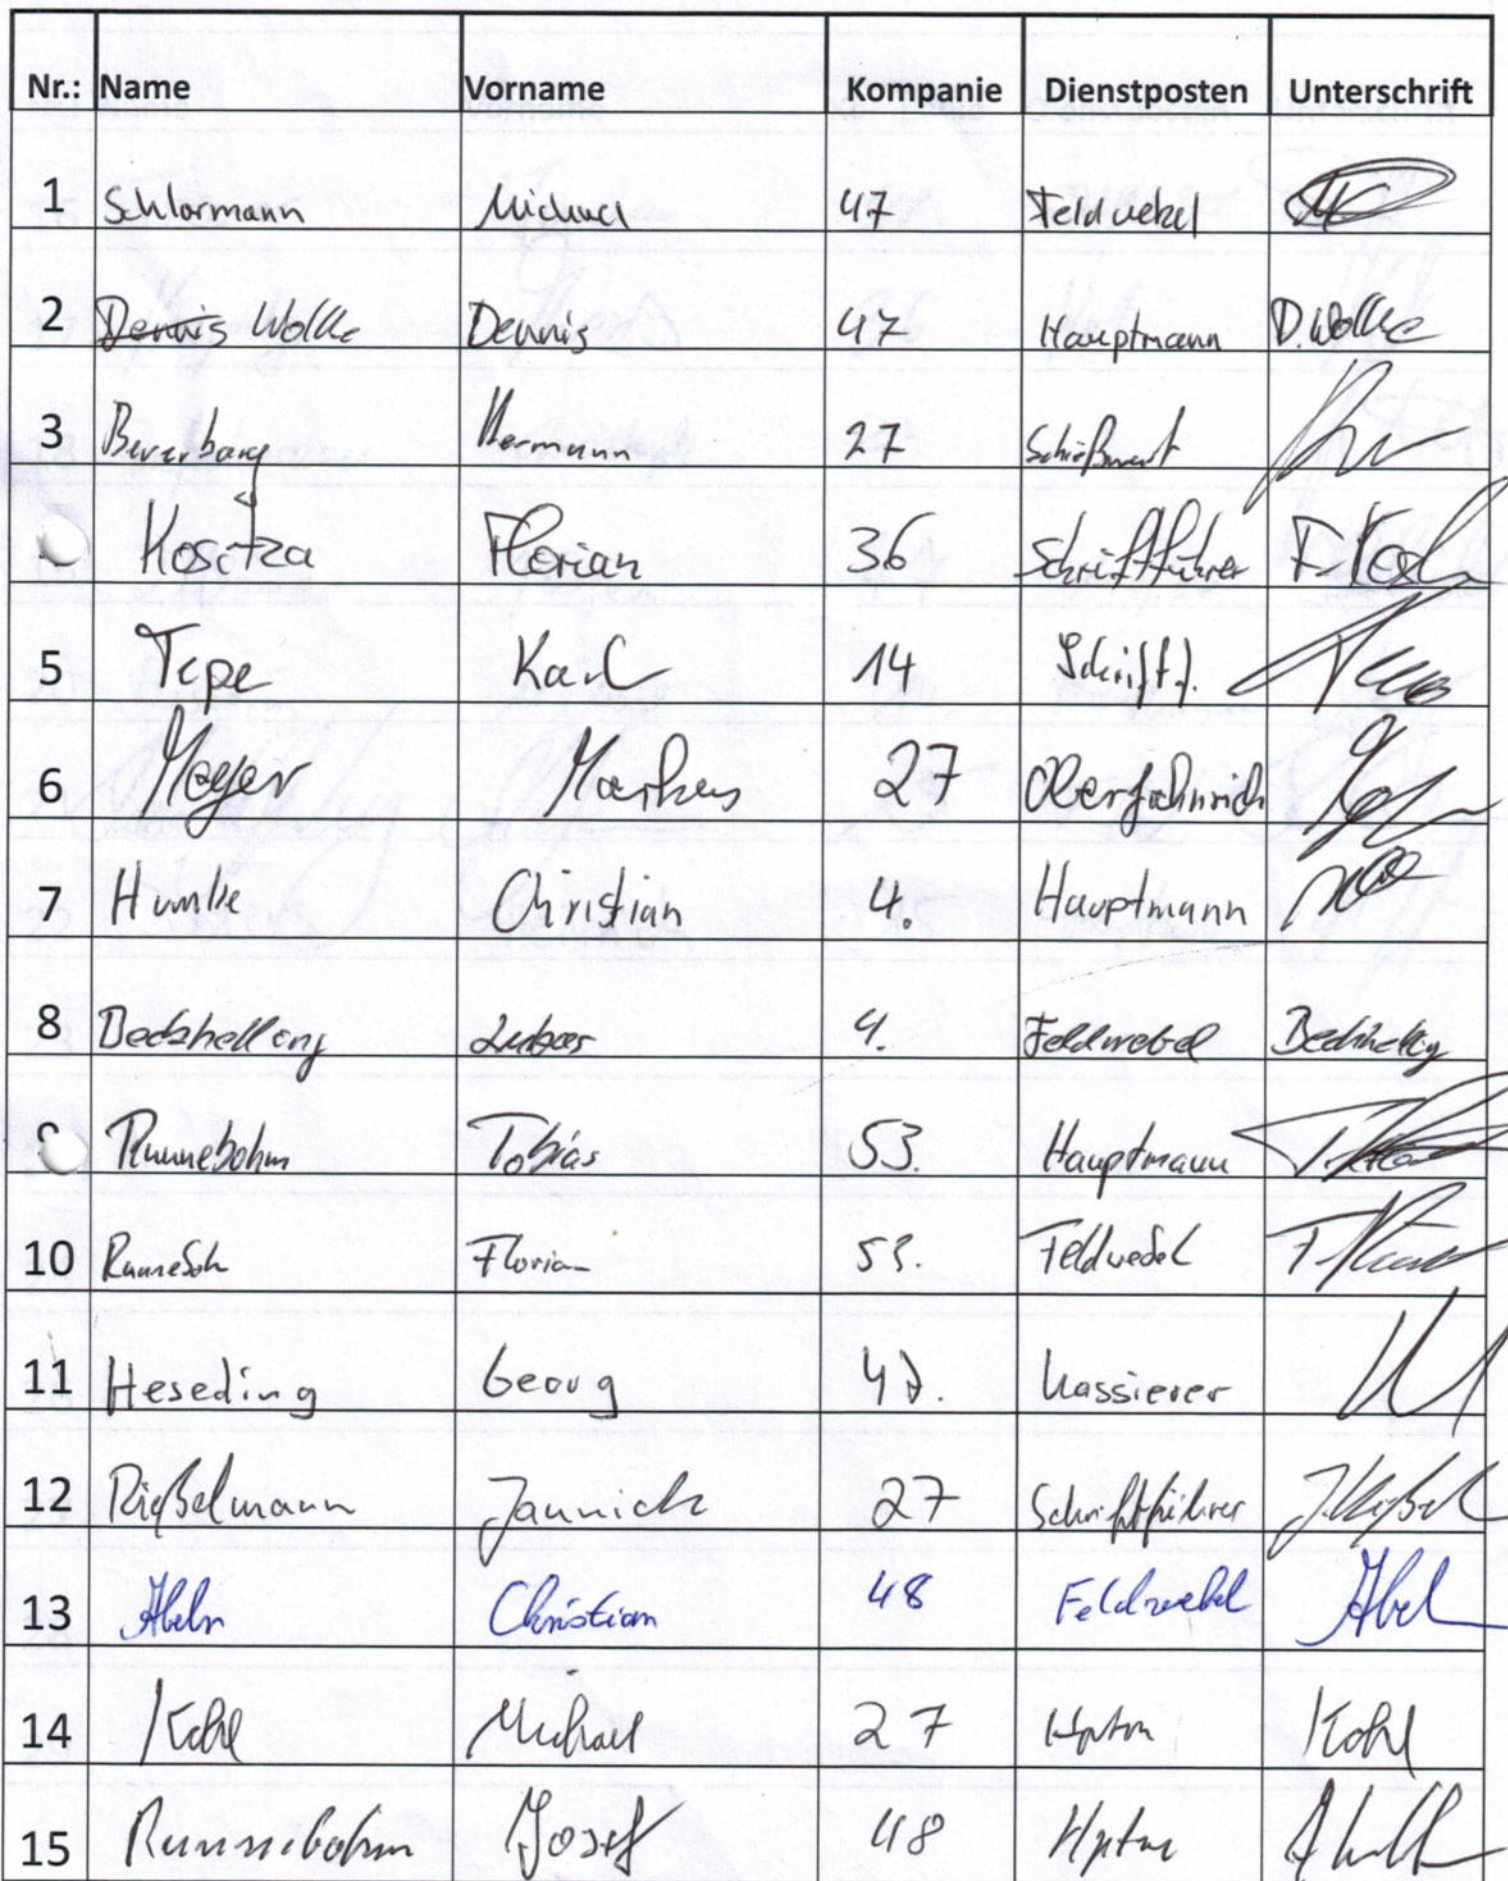 Nr.: Name Vorname Kompanie Dienstposten Unterschrift
1 Schlormann Michael 47 Feldwebel
2 Dennis Wolke Dennis 47 Hauptmann D. Wolke
3 Hermann 27 Schießwart
Kositza Florian 36 Schriftführer
5 Tepe Karl 14 Schriftf.
6 Meyer Markus 27 Oberfähnrich
7 Humke Christian 4. Hauptmann
8 Lukas 4. Feldwebel
Runnebohm Tobias 53. Hauptmann
10 Florian 53. Feldwebel
11 Heseding Georg 47. Kassierer
12 Rießelmann Jannick 27 Schriftführer
13 Abeln Christian 48 Feldwebel Abel
14 Kohl Michael 27 Hptm Kohl
15 Runnebohm Josef 48 Hptm